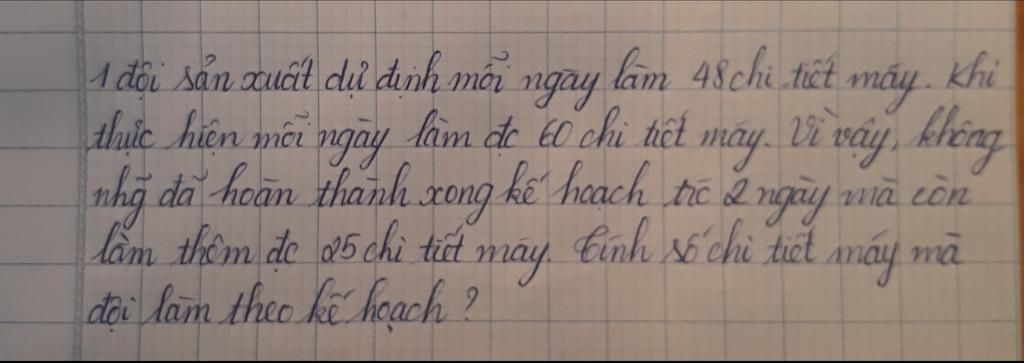 1 đội sản xuất dự định mỗi ngày làm 48 chi tiết máy. Khi
thực hiện mỗi ngày làm đc 60 chi tiết máy. Vì vậy, không
nhg̃ đã hoàn thành xong kế hoạch trc 2 ngày mà còn
làm thêm đc 25 chi tiết máy. Tính số chi tiết máy mà
đội làm theo kế hoạch?